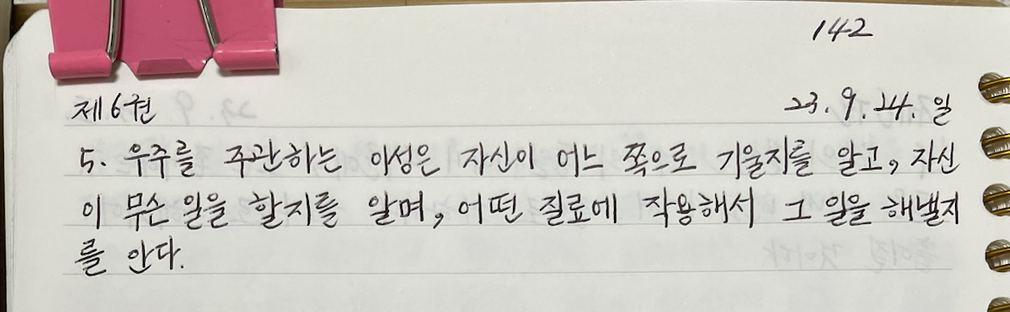 142
제6권 23.9.24.일
5. 우주를 주관하는 이성은 자신이 어느 쪽으로 기울지를 알고, 자신
이 무슨 일을 할지를 알며, 어떤 질료에 작용해서 그 일을 해낼지
를 안다.